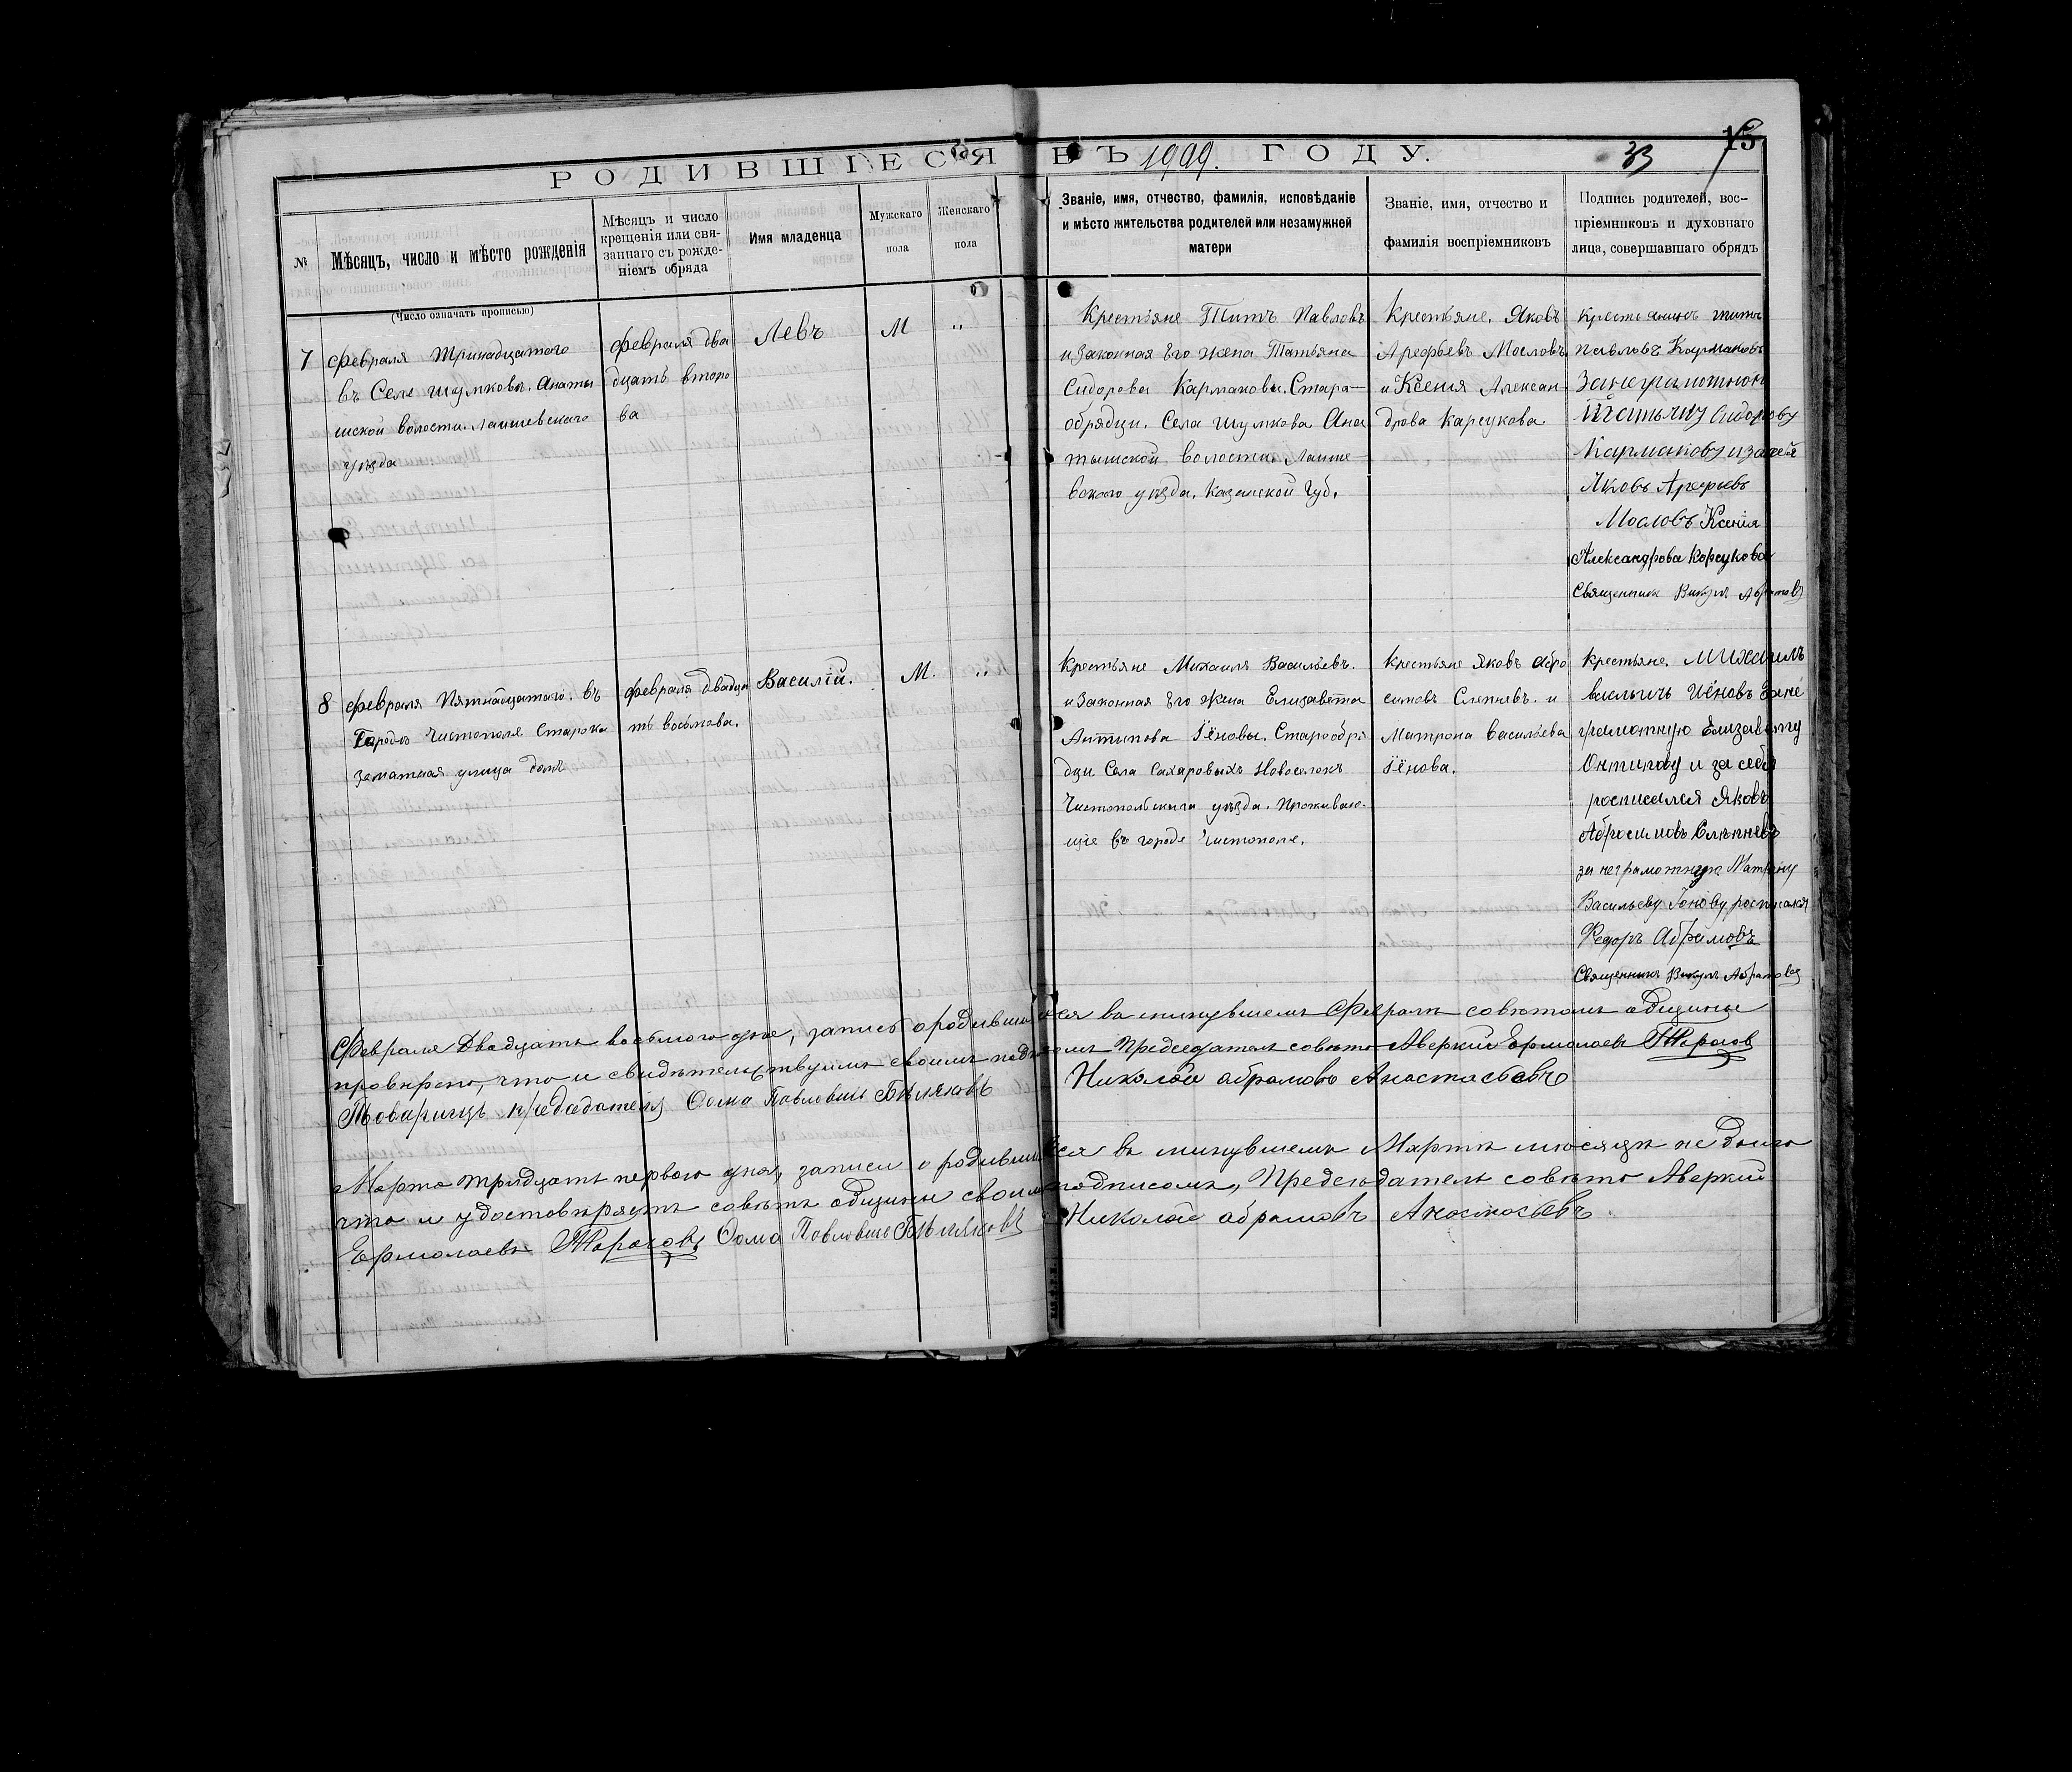 РОДИВШІЕСЯ ВЪ 1909. ГОДУ.
33
15
№
Мѣсяцъ, число и мѣсто рожденія
(Число означать прописью)
Мѣсяцъ и число
крещенія или свя-
заннаго съ рожде-
ніемъ обряда
Имя младенца
Мужскаго
пола
Женскаго
пола
Званіе, имя, отчество, фамилія, исповѣданіе
и мѣсто жительства родителей или незамужней
матери
Званіе, имя, отчество и
фамилія воспріемниковъ
Подпись родителей, вос-
пріемниковъ и духовнаго
лица, совершавшаго обрядъ
7
февраля Тринадцатого
въ Селе шумковѣ. Анаты
шской волости. Лаишевскаго
уѣзда
февраля два
дцать второ
ва
Левъ
М
„
Крестьяне Титъ Павловъ
и Законная Его жена Татьяна
Сидорова Кармановы. Старо-
обрядцы. Села шумкова Ана
тышской волости. Лаише-
вского уѣзда. Казанской Губ.
Крестьяне. Яковъ
Арефьевъ Масловъ
и Ксения Алексан-
дрова Карсукова
Крестьянинъ титъ
павловъ Кармановъ
Занеграмотною
Татьяну Сидорову
Карманову изасебя
Яковъ Арефьевъ
Масловъ Ксенія
Александрова Корсукова
Священникъ Викулъ Абрамовъ
8
февраля Пятнадцатого. въ
Городѣ Чистополе Старока
зематная улица домъ
февраля двадца
ть восьмова.
Василій.
М.
„
Крестьяне Михаилъ Васильевъ.
и Законная Его Жена Елизавета
Антипова Іёновы. Старообря
дцы Села Сахаровыхъ Новоселокъ
Чистопольскаго уѣзда. Проживаю-
щіе въ городе Чистополе.
Крестьяне Яковъ Абро
симовъ Слепневъ. и
Матрона Васильева
Іёнова.
Крестьяне. Михаилъ
васильичъ Иёновъ Зане
грамотную Елизавету
Онтипову и за себя
росписался Яковъ
Абросимовъ Слѣпневъ
за неграмотную Матрену
Васильеву Іонову росписался
Федоръ Абрамовъ
Священникъ Викулъ Абрамовъ
Февраля Двадцать восьмого дня, запись ородившихся въ минувшемъ Февралѣ совѣтомъ общины
провѣрено, что и свидѣтельствуимъ своимъ подписомъ Председатель совѣта Аверкий Ермолаевъ Тарасов
Товарищъ председателя Фома Павловичъ Бѣляковъ Николай абрамовъ Анастасьевъ
Марта тридцать первого дня, записи о родившихся въ минувшемъ Мартѣ мѣсяцѣ не было
что и удостовѣряетъ совѣтъ общины своимъ подписомъ, Председатель совѣта Аверкий
Ермолаевъ Тарасовъ Фома Павловичъ Бѣляковъ Николай абрамовъ Анастасьевъ